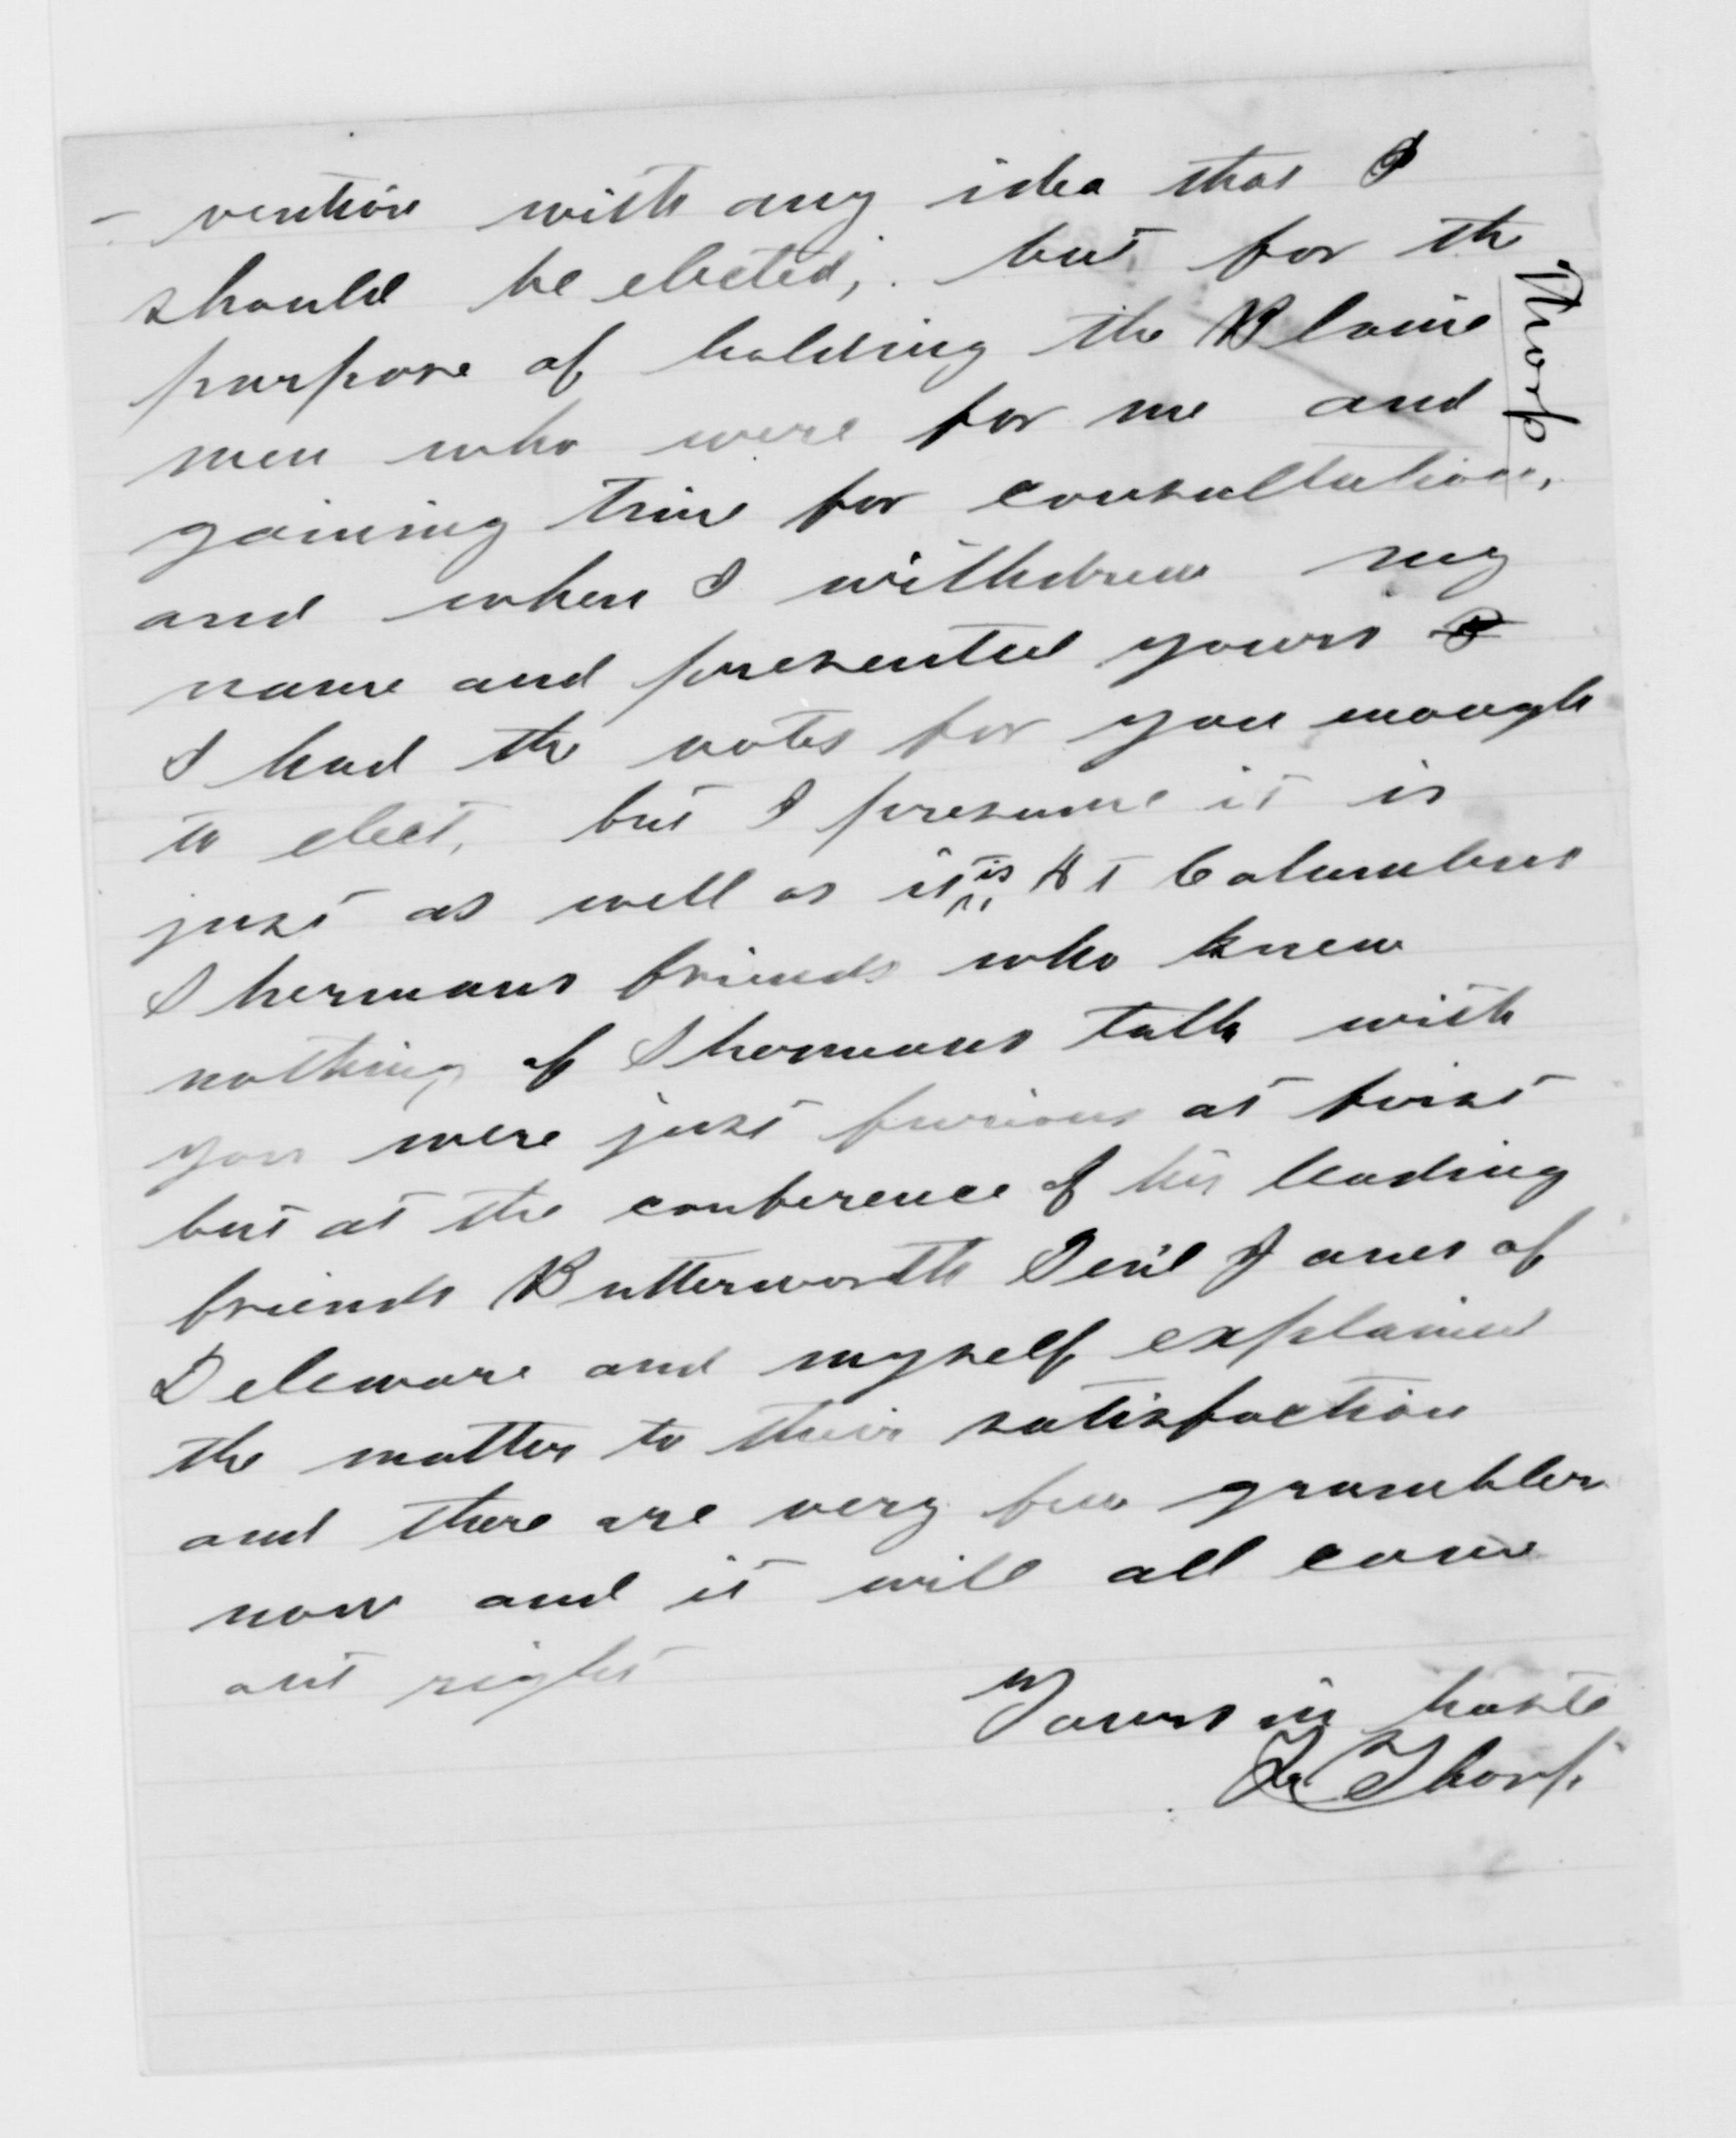 - vention with any idea that I
should be elected; but for the
purpose of holding the Blaine
men who were for me and
gaining time for consultation,
and when I withdrew my
name and presented yours
I had the votes for you enough
to elect, but I presume it is
just as well as it is At Columbus
Shermans friends who knew
nothing of Shermans talk with
you were just furious at first
but at the conference of his leading
friends Butterworth Genl Jones of
Deleware and myself explained
the matter to their satisfaction
and there are very few grumblers
now and it will all come
out right
Yours in haste
F Thorp
Thorp